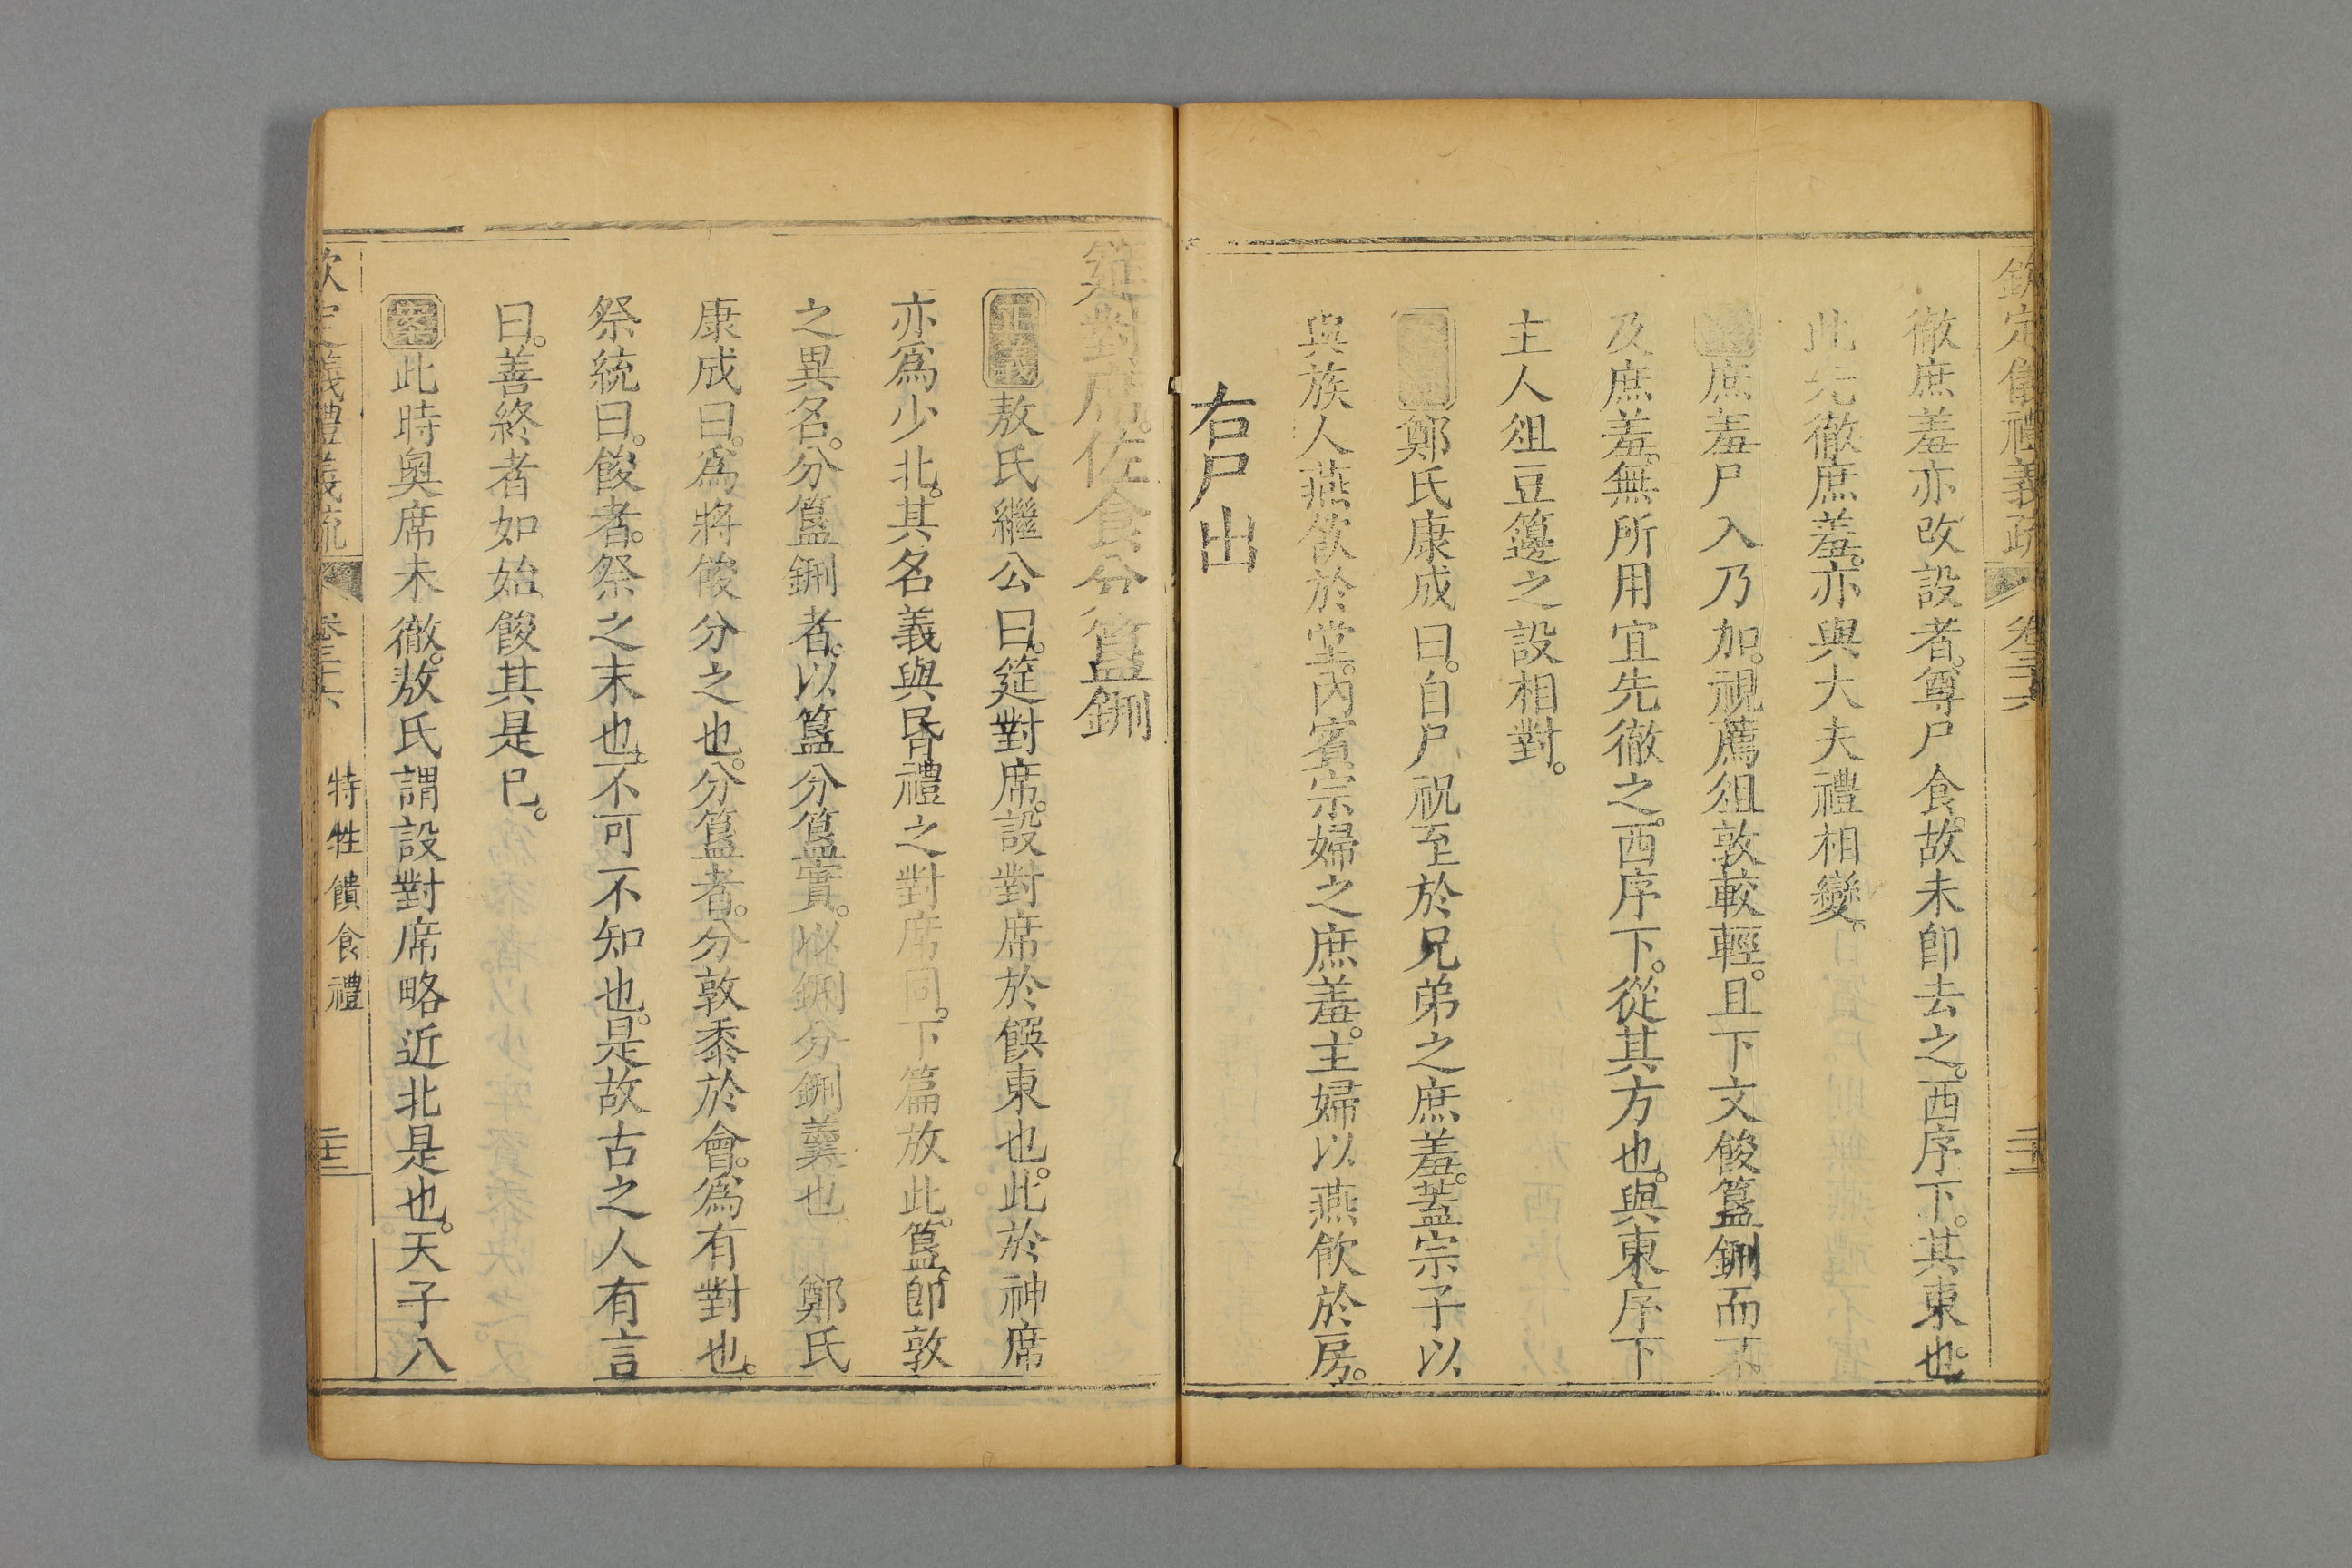 欽定儀禮義疏 卷三十六
徹庶羞亦改設者尊尸食故未卽去之西序下其東也
此先徹庶羞亦與大夫禮相變
庶羞尸入乃加視薦俎敦較輕且下文餕簋鉶而不
及庶羞無所用宜先徹之西序下從其方也與東序下
主人俎豆籩之設相對
鄭氏康成曰自尸祝至於兄弟之庶羞蓋宗子以
與族人燕飲於堂內賓宗婦之庶羞主婦以燕飲於房
右尸出
筵對席佐食分簋鉶
正義敖氏繼公曰筵對席設對席於饌東也此於神席
亦爲少北其名義與昬禮之對席同下篇放此簋卽敦
之異名分簋鉶者以簋分簋實以鉶分鉶羹也 鄭氏
康成曰爲將餕分之也分簋者分敦黍於會爲有對也
祭統曰餕者祭之末也不可不知也是故古之人有言
曰善終者如始餕其是已
案此時奧席未徹敖氏謂設對席略近北是也天子八
欽定儀禮義疏 卷三十六 特牲饋食禮